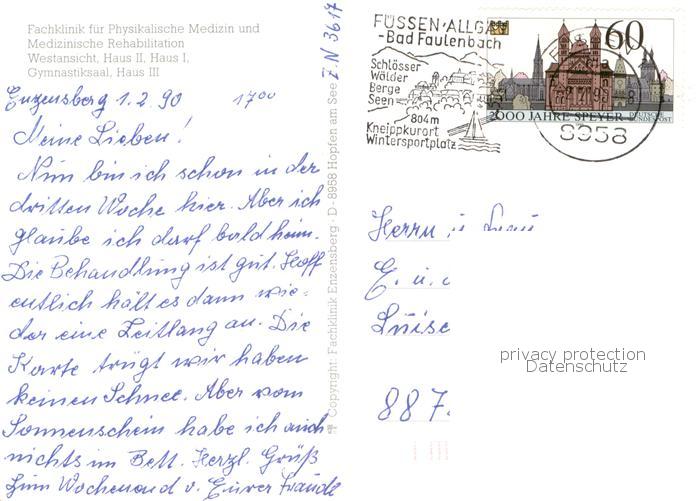 Fachklinik für Physikalische Medizin und
Medizinische Rehabilitation
Westansicht, Haus II, Haus I,
Gymnastiksaal, Haus III
Z.N 3617
Enzensberg 1.2.90 17 00
Meine Lieben!
Nun bin ich schon in der
dritten Woche hier. Aber ich
glaube ich darf bald heim.
Die Behandlung ist gut. Hoff
entlich hält es dann wie-
der eine Zeitlang an. Die
Karte trügt wir haben
keinen Schnee. Aber vom
Sonnenschein habe ich auch
nichts im Bett. Herzl. Grüß
Zum Wochenend v. Eurer Traudl
Copyright: Fachklinik Enzensberg · D-8958 Hopfen am See
FÜSSEN · ALLGÄU
-Bad Faulenbach
Schlösser
Wälder
Berge
Seen
804m
Kneippkurort
Wintersportplatz
60
2000 JAHRE SPEYER
DEUTSCHE
BUNDESPOST
8958
Herrn u
E. u.
Luise
887.
privacy protection
Datenschutz